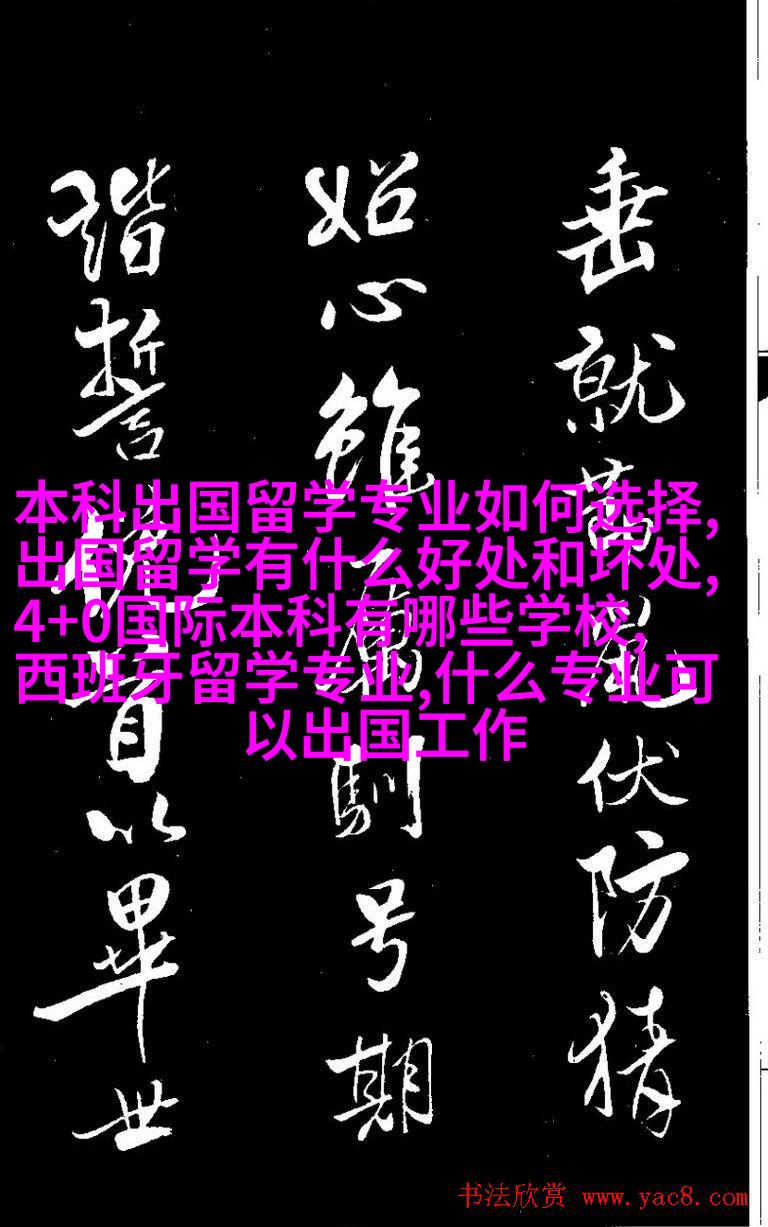 垂就荣显伏防猜
妬心虽属驯号期
谐誓皓首以畢世
本科出国留学专业如何选择,
出国留学有什么好处和坏处,
4+0国际本科有哪些学校,
西班牙留学专业,什么专业可
以出国工作
书法欣赏 www.yac8.com